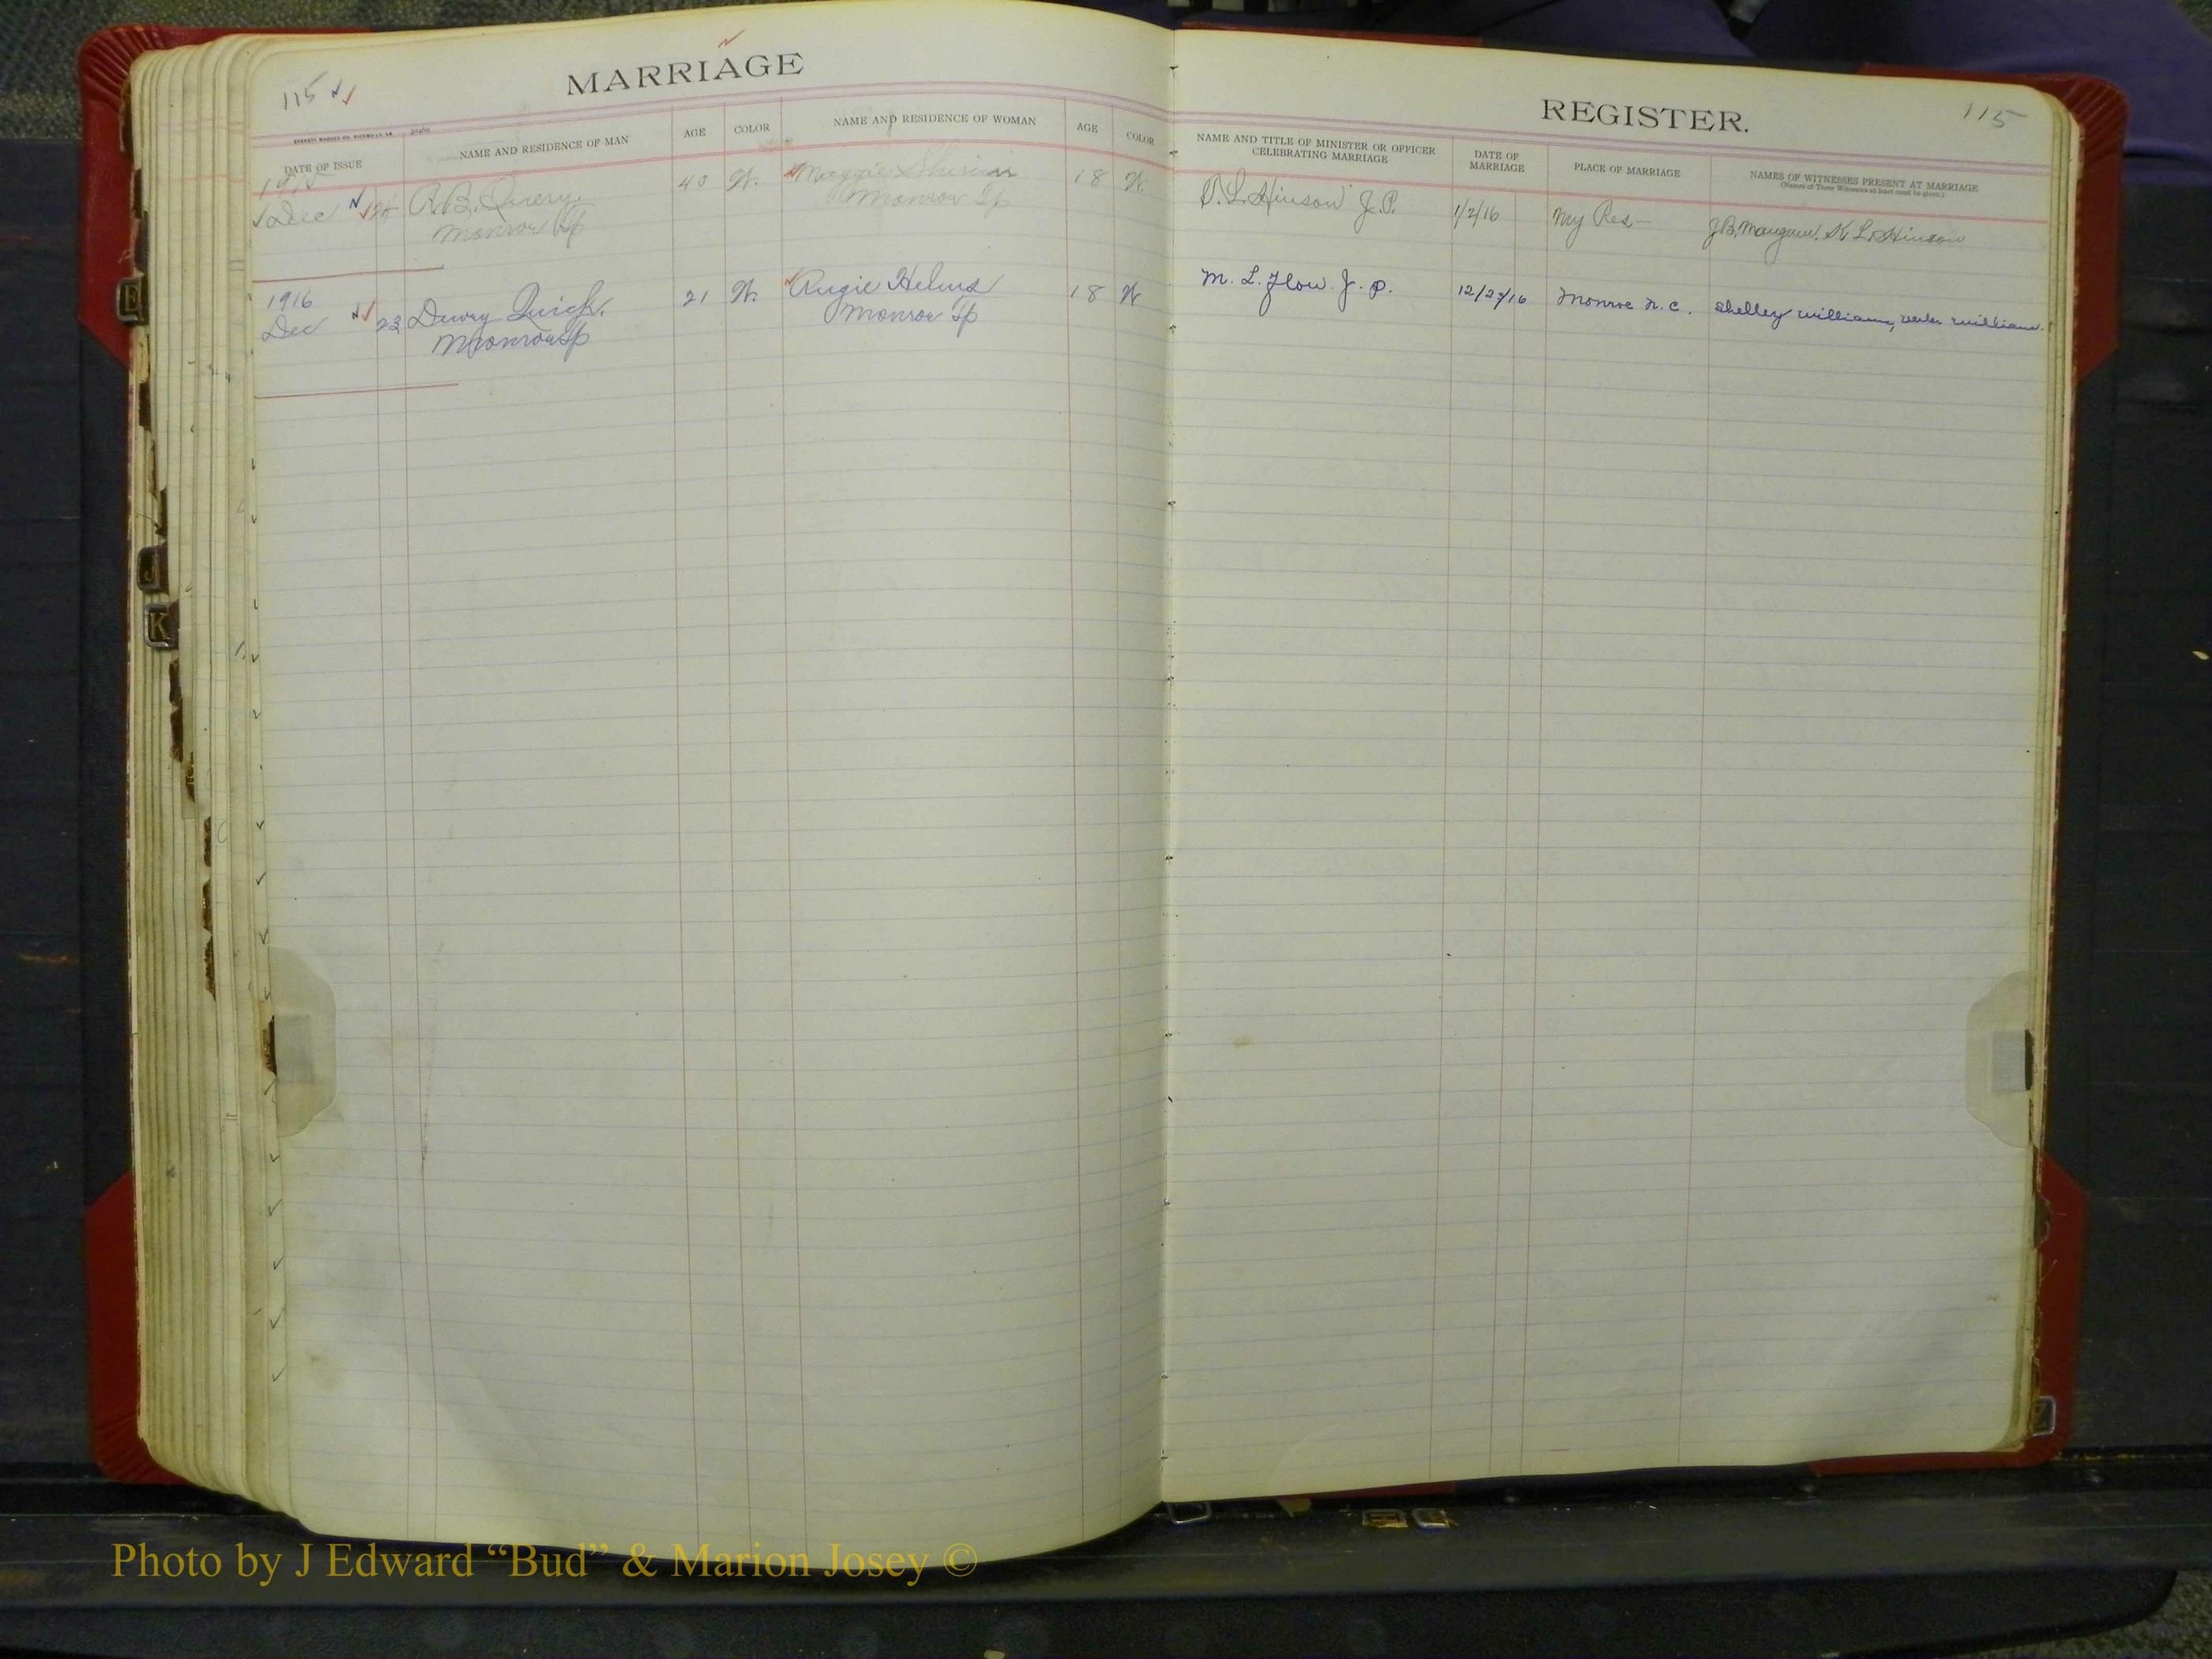 115
MARRIAGE
DATE OF ISSUE
NAME AND RESIDENCE OF MAN
AGE
COLOR
NAME AND RESIDENCE OF WOMAN
AGE
COLOR
1915
Dec
R.B. Query.
Monroe Tp
40
W.
Maggie
Monroe Tp
18
W.
1916
Dec
23
Dewey Quick.
Monroe Tp
21
W.
Angie Helms
Monroe Tp
18
W
REGISTER.
115
NAME AND TITLE OF MINISTER OR OFFICER
CELEBRATING MARRIAGE
DATE OF
MARRIAGE
PLACE OF MARRIAGE
NAMES OF WITNESSES PRESENT AT MARRIAGE
(Names of Three Witnesses at least must be given.)
L. Hinson J.P.
1/2/16
My Res-
J.B. Mangum, K L. Hinson
M. L. Flow J. P.
12/23/16
Monroe N. C.
Shelley Williams, Williams.
E
J
K
Photo by J Edward “Bud” & Marion Josey ©